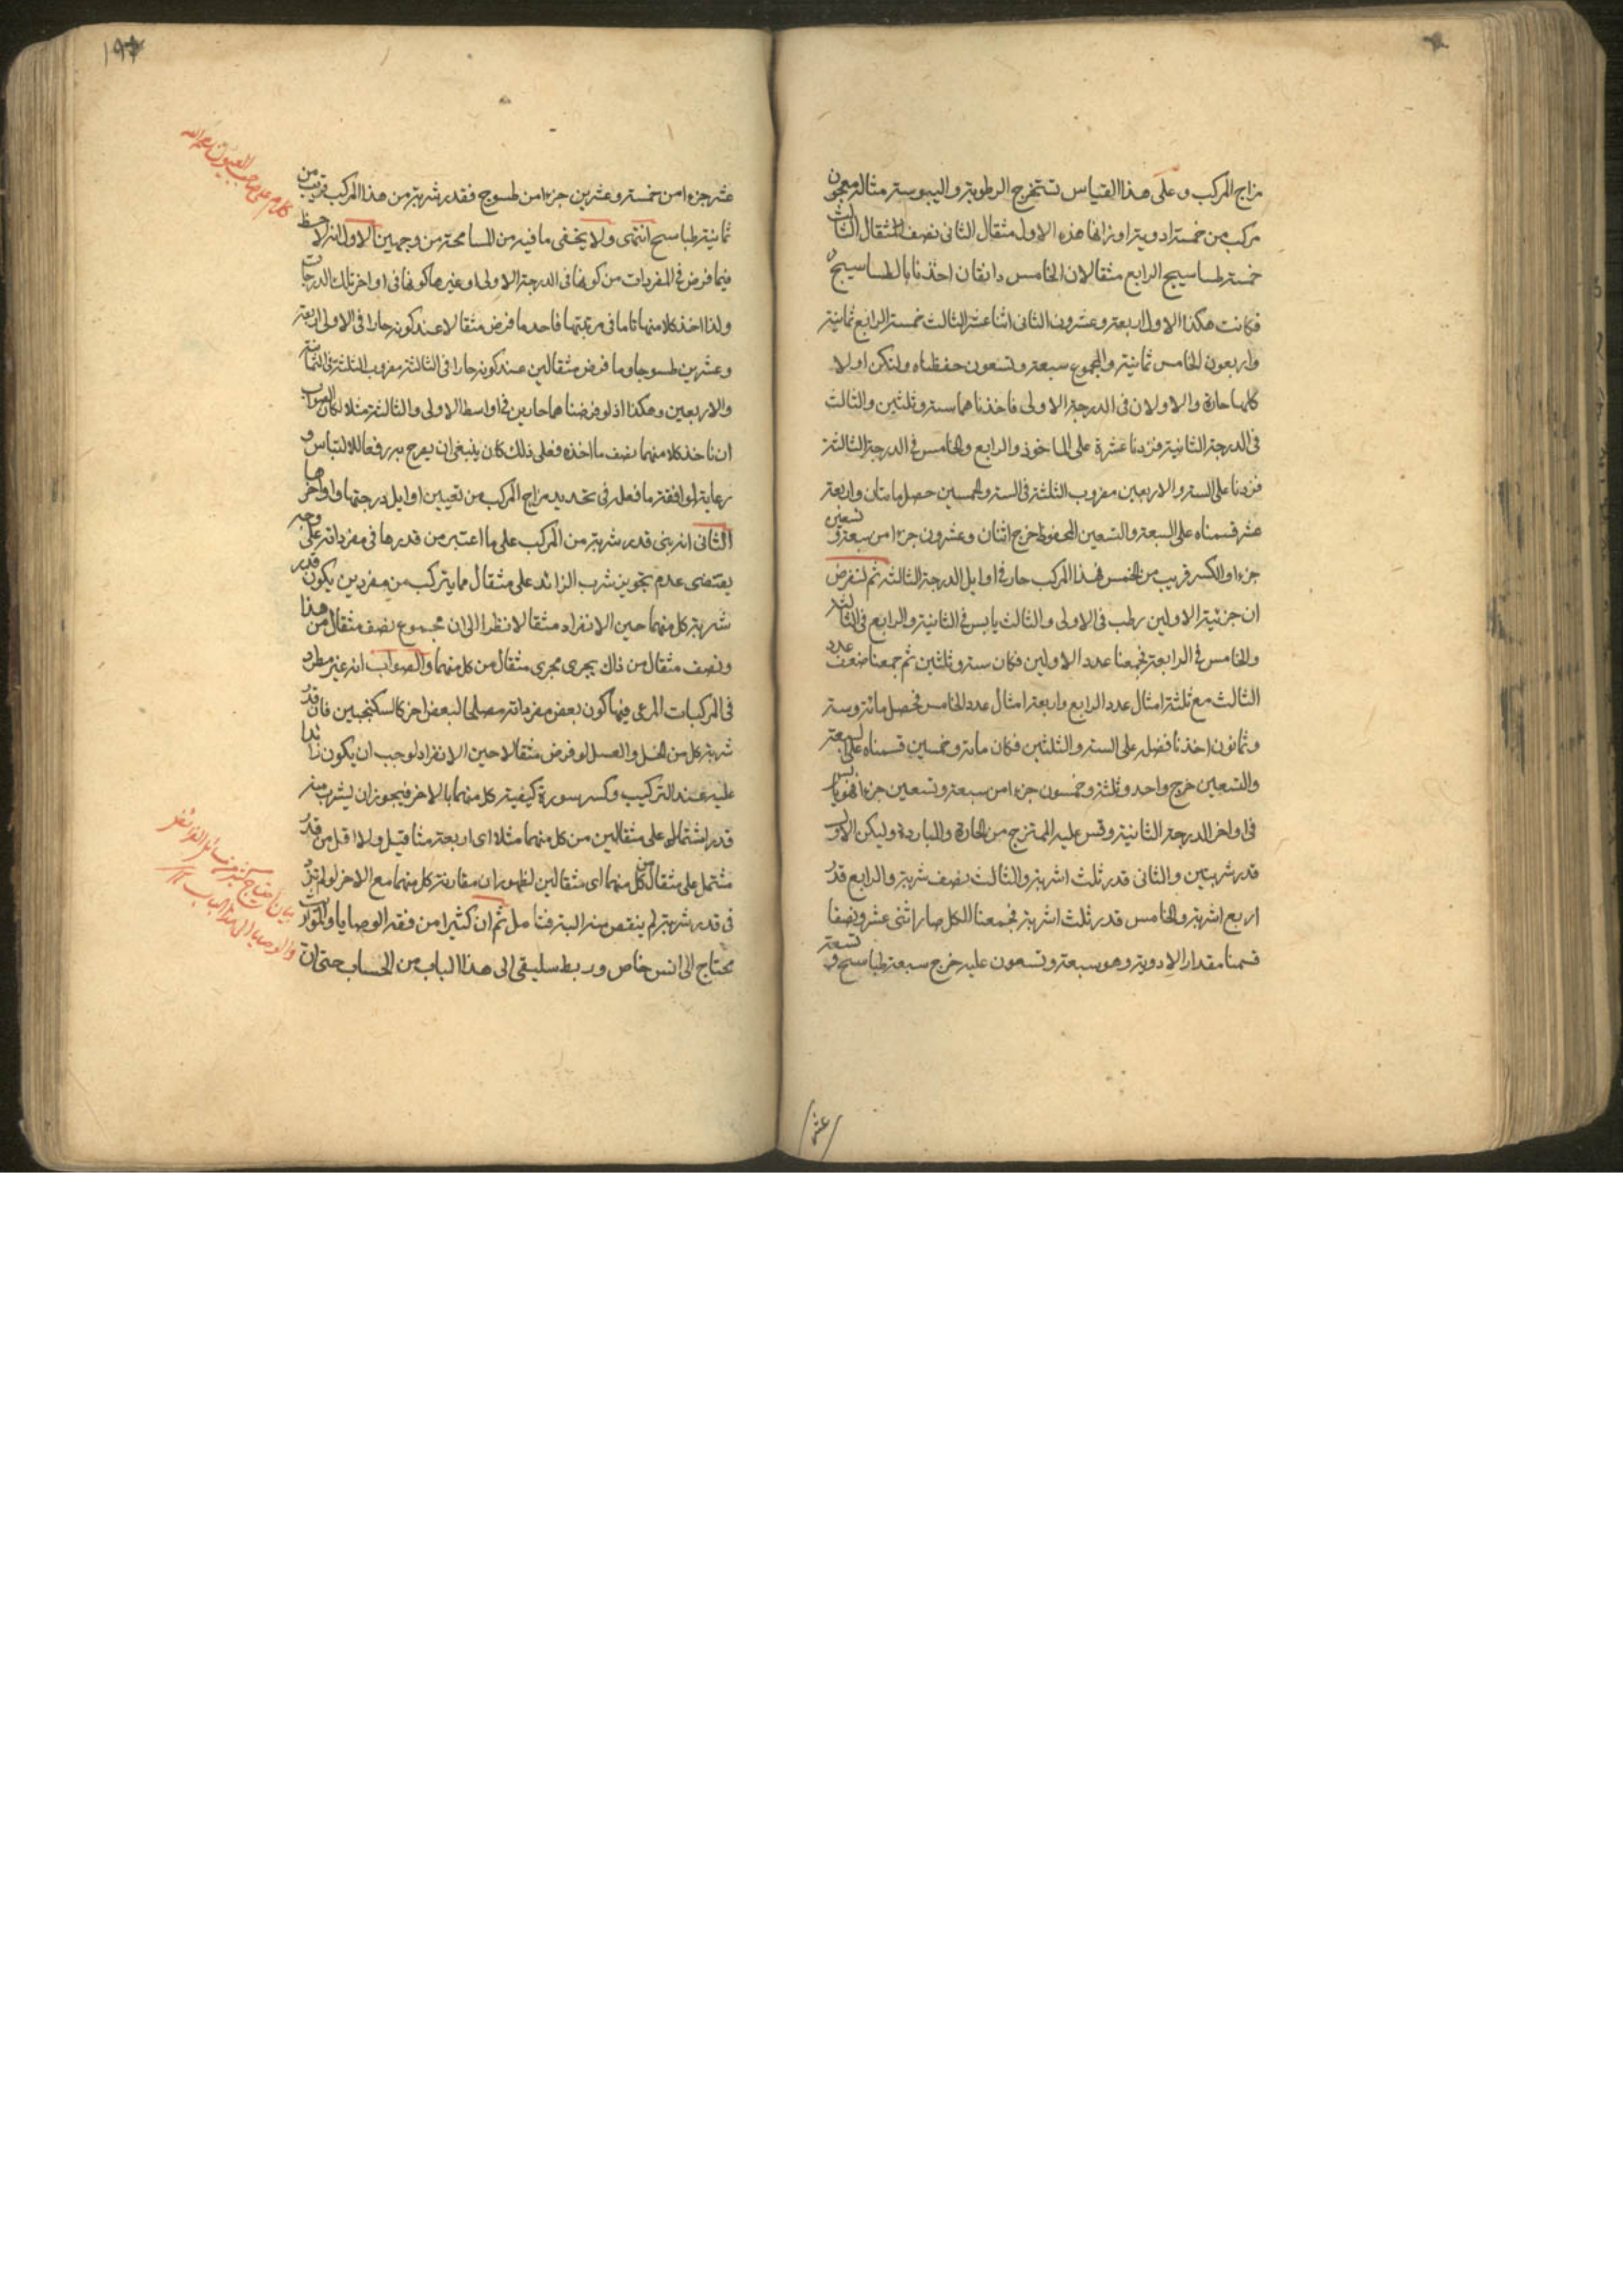 مزاج المركب وعلى هذا القياس تستخرج الرطوبة واليبوسة مثاله معجون
مركب من خمسة ادوية اوزانها هذه الاول مثقال الثاني نصف المثقال الثالث
خمسة طساسيج الرابع مثقالان الخامس دانقان اخذنا بالطساسيج
فكانت هكذا الاول اربعة وعشرون الثاني اثنا عشر الثالث خمسة الرابع ثمانية
واربعون الخامس ثمانية والمجموع سبعة وتسعون حفظناه ولتكن اولا
كلها حارة والاولان في الدرجة الاولى فاخذناهما ستة وثلثين والثالث
في الدرجة الثانية فزدنا عشرة على الماخوذ والرابع والخامس في الدرجة الثالثة
فزدنا على الستة والاربعين مضروب الثلثة في الستة والخمسين حصل مايتان واربعة
عشر قسمناه على السبعة والتسعين المحفوظ خرج اثنان وعشرون جزءا من سبعة وتسعين
جزءا والكسر قريب من الخمس فهذا المركب حار في اوايل الدرجة الثالثة ثم لنفرض
ان جزئية الاولين رطب في الاولى والثالث يابس في الثانية والرابع في الثالثة
والخامس في الرابعة فجمعنا عدد الاولين فكان ستة وثلثين ثم جمعنا ضعف عدد
الثالث مع ثلثة امثال عدد الرابع واربعة امثال عدد الخامس فحصل مائة وستة
وثمانون اخذنا فضله على الستة والثلثين فكان مائة وخمسين قسمناه على السبعة
والتسعين خرج واحد وثلثة وخمسون جزءا من سبعة وتسعين جزءا فهو يابس
في اواخر الدرجة الثانية وقس عليه الممتزج من الحارة والباردة وليكن الاول
قدر شربتين والثاني قدر ثلث اشربة والثالث نصف شربة والرابع قدر
اربع اشربة والخامس قدر ثلث اشربة فجمعنا الكل صار اثنى عشر ونصفا
قسمنا مقدار الادوية وهو سبعة وتسعون عليه خرج سبعة طباسيج وتسعة
عشر
١٩
عشر جزءا من خمسة وعشرين جزءا من طسوج فقدر شربة من هذا المركب قريب من
ثمانية طباسيج انتهى ولا يخفى ما فيه من المسامحة من وجهين الاول انه لاحظ
فيما فرض في المفردات من كونها في الدرجة الاولى او غيرها كونها في اواخر تلك الدرجات
ولذا اخذ كلا منها تاما في مرتبتها فاخذ ما فرض مثقالا عند كونه حارا في الاولى اربعة
وعشرين طسوجا وما فرض مثقالين عند كونه حارا في الثالثة مضروب الثلثة في الثمانية
والاربعين وهكذا اذ لو فرضناهما حارين في اواسط الاولى والثالثة مثلا لكان الصواب
ان ناخذ كلا منهما نصف ما اخذه فعلى ذلك كان ينبغي ان يصرح به رفعا للالتباس و
رعاية لموافقة ما فعله في تحديد مزاج المركب من تعيين اوايل درجتها واواخرها
الثاني انه بنى قدر شربة من المركب على ما اعتبر من قدرها في مفرداته على وجه
يقتضى عدم تجويز شرب الزائد على مثقال مما يتركب من مفردين يكون قدر
شربة كل منهما حين الانفراد مثقالا نظرا الى ان مجموع نصف مثقال من هذا
ونصف مثقال من ذاك يجرى مجرى مثقال من كل منهما والصواب انه غير مطرد
في المركبات المرعى فيها كون بعض مفرداته مصلحا لبعض اخر كالسكنجبين فان قدر
شربة كل من الخل والعسل لو فرض مثقالا حين الانفراد لوجب ان يكون زائدا
عليه عند التركيب وكسر سورة كيفية كل منهما بالاخر فيجوز ان يشرب منه
قدر اشتماله على مثقالين من كل منهما مثلا اى اربعة مثاقيل ولا اقل من قدر
مشتمل على مثقال من كل منهما اى مثقالين لظهور ان مقارنة كل منهما مع الاخر لو لم تزد
في قدر شربة لم ينقص منه البتة فتامل ثم ان كثيرا من فقه الوصايا والمواريث
محتاج الى انس خاص وربط سليقى الى هذا الباب من الحساب حتى ان
كلام على صاحب العيون رحمه الله
بيان احتياج كثير من مسائل الفرائض
والوصايا الى هذا الباب